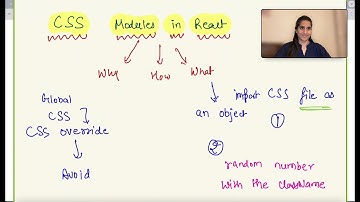 CSS Modules in React
Why How What
Global
CSS
CSS override
Avoid
import CSS file as
an object ①
②
random number
with the className